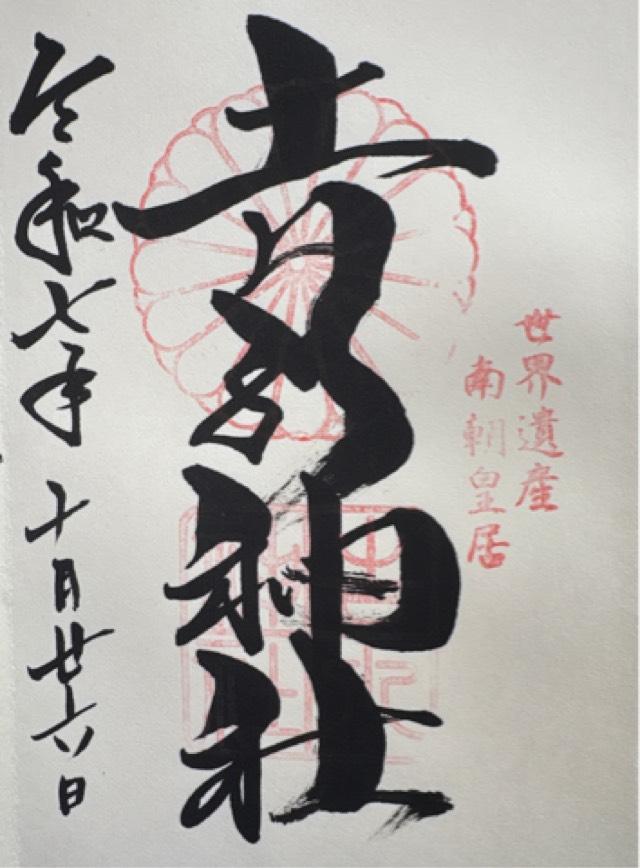 世界遺産
南朝皇居
吉水神社
令和七年十月廿六日